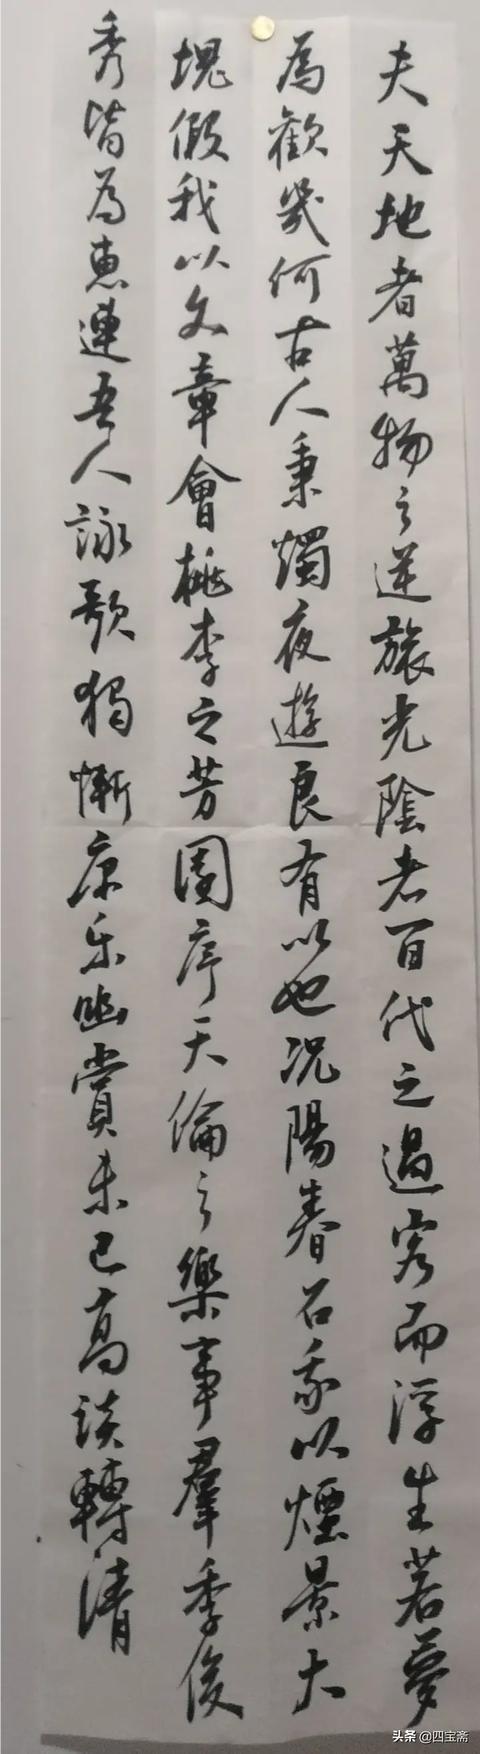 夫天地者萬物之逆旅光陰者百代之過客而浮生若夢
為歡幾何古人秉燭夜遊良有以也況陽春召我以煙景大
塊假我以文章會桃李之芳園序天倫之樂事羣季俊
秀皆為惠連吾人詠歌獨慚康乐幽賞未已高談轉清
头条 @四宝斋